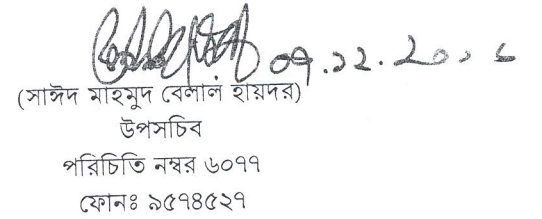 ০৭.১২.২০১৬
(সাঈদ মাহমুদ বেলাল হায়দর)
উপসচিব
পরিচিতি নম্বর ৬০৭৭
ফোনঃ ৯৫৭৪৫২৭